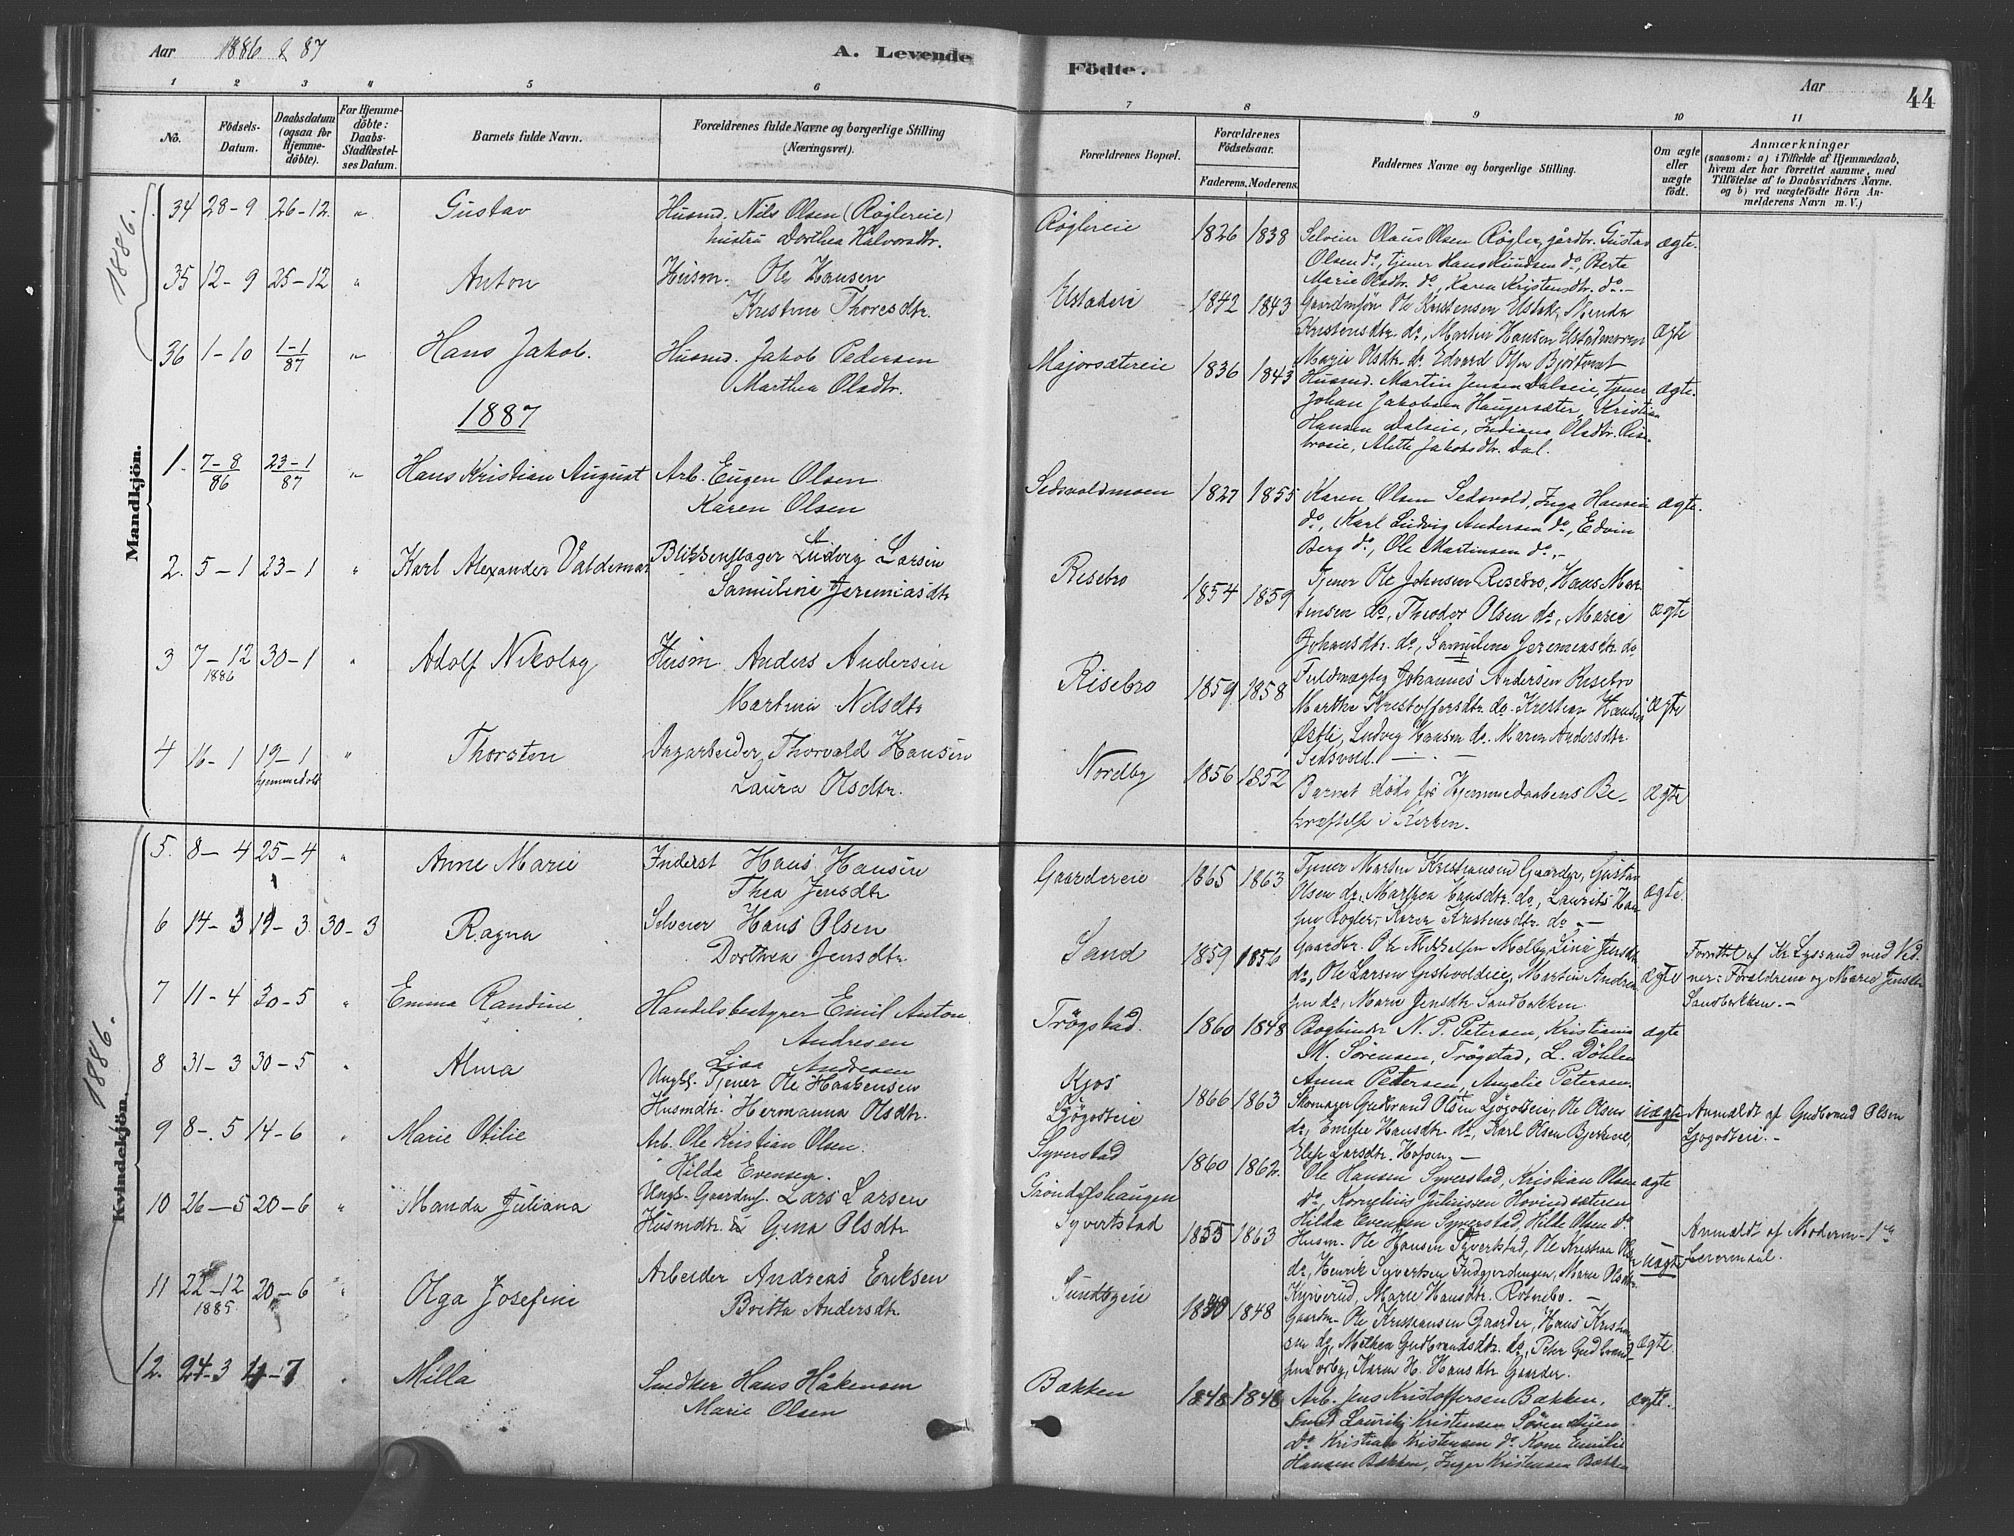 Aar 1886 & 87
A. Levende
Födte.
Aar
44
1 2 3 4 5 6 7 8 9 10 11
No.
Födsels-
Datum.
Daabsdatum
(ogsaa for
Hjemme-
döbte).
For Hjemme-
döbte:
Daabs-
Stadfæstel-
ses Datum.
Barnets fulde Navn.
Forældrenes fulde Navne og borgerlige Stilling
(Næringsvei).
Forældrenes Bopæl.
Forældrenes
Födselsaar.
Faderens. Moderens.
Faddernes Navne og borgerlige Stilling.
Om ægte
eller
uægte
født.
Anmærkninger
(saasom: a) i Tilfælde af Hjemmedaab,
hvem der har forrettet samme, med
Tilföielse af to Daabsvidners Navne,
og b) ved uægtefödte Börn An-
melderens Navn m. V.)
Mandkjön.
1886.
34 28-9 26-12 " Gustav
Husmd. Nils Olsen (Røglereie)
hustru Dorthea Halvorsdtr.
Røglereie 1826 1838
Selveier Olaus Olsen Røgler, gårdbr. Gustav
Olsen do, tjener Hans Knudsen do, Berte
Marie Olsdtr. do, Karen Kristensdtr. do.-
ægte.
35 12-9 25-12 " Anton
Husm. Ole Hansen
Kristine Thoresdtr.
Elstadeie 1842 1843
Gaardmsøn Ole Kristensen Elstad,
Kristensdtr. do, Martin Hansen Elstadmoren
Marie Olsdtr. do Edvard Olsen
ægte
36 1-10 1-1/87 " Hans Jakob.
Husmd. Jakob Pedersen
Marthea Olsdtr.
Majorsætereie 1836 1843
Husmd. Martin Jensen Dalseie, tjener
Johan Jakobsen Haugersæter, Kristian
Hansen Dalseie, Indiana Olsdtr. Ris-
broeie, Alette Jakobsdtr. Dal.
ægte.
1887
1. 7-8/86 23-1/87 " Hans Kristian August
Arb. Eugen Olsen
Karen Olsen
Sedsvoldmoen 1827 1855
Karen Olsen Sedsvold, Inga Hansen
do, Karl Ludvig Andersen do, Edvin
Berg do, Ole Martinsen do.-
ægte.
2. 5-1 23-1 " Karl Alexander Valdemar
Blikkenslager Ludvig A. Larsen
Samuline Jeremiasdtr
Risebro 1854 1859
Tjener Ole Johnsen Risebro, Hans Mar-
tinsen do, Theodor Olsen do, Marie
Johansdtr. do, Samuline Jeremiasdtr. do
ægte
3 7-12 1886 30-1 " Adolf Nikolay
Husm. Anders Andersen
Martina Nilsdtr
Risebro 1859 1858
Fuldmægtig Johannes Andersen Risebro
Marthe Kristoffersdtr. do. Kristian Hansen
Østli, Ludvig Hansen do. Maren Andersdtr.
Sedsvold.-
ægte
4 16-1 19-1 hjemmedøbt " Thorsten
Dagarbeider Thorvald Hansen
Laura Olsdtr.
Nordby 1856 1852
Barnet døde før Hjemmedaabens Be-
kræftelse i Kirken.
ægte
Kvindekjön.
1886.
5. 8-4 25-4 " Anne Marie
Inderst Hans Hansen
Thea Jensdtr
Gaardereie 1865 1863
Tjener Martin Kristiansen Gaarder, Gustav
Olsen do, Marthea Hansdtr. do, Laurits Han-
sen Røgler, Karen Kristensdtr. do.-
ægte.
6 14-3 19-3. 30-3 Ragna
Selveier Hans Olsen
Dorthea Jensdtr.
Sand 1859 1856
Gaardbr. Ole Mikkelsen Melby, Lina Jensdtr
do, Ole Larsen Gistvoldeie, Martin Andre-
sen do, Marie Jensdtr. Sandbakken.
ægte
Forrettet af Kr. Lyssand med Vid-
ner: Forældrene og Marie Jensdtr
Sandbakken.-
7 11-4 30-5 " Emma Randine
Handelsbestyrer Emil Anton
Andresen
Lisa Andresen
Trøgstad. 1860 1848
Bogbinder N. P. Petersen, Kristiania
M. Sørensen, Trøgstad, L. Døhlen
Anna Petersen, Amalie Petersen.
ægte
8 31-3 30-5 " Alma
Ungk. Tjener Ole Haakensen
Husmdtr. Hermanna Olsdtr.
Kjos
Ljøgodteie 1866 1863
Skomager Gudbrand Olsen Ljøgodteie, Ole Olsen
do, Emilie Hansdtr. do, Karl Olsen Bjerkene,
Elise Larsdtr. Hofsen.-
uægte
Anmeldt af Gudbrand Olsen
Ljøgodteie.-
9 8-5 14-6 " Marie Otilie
Arb. Ole Kristian Olsen.
Hilda Evensen.
Syverstad 1860 1862
Ole Hansen Syverstad, Kristian Olsen
do, Kornelius Juliussen Hovindsæteren
Hilda Evensen Syverstad, Hilde Olsen do
ægte
10 26-5 20-6 " Manda Juliana
Ungk. Gaardmf. Lars Larsen
Husmdtr. Gina Olsdtr.
Grøndalshaugen
Syvertstad 1855 1863
Husm. Ole Hansen Syverstad, Ole Kristian Olsen
do, Henrik Syvertsen Indgjerdingen, Maren Olsdtr.
Kynnerud, Marie Hansdtr. Rotnebo.-
uægte
Anmeldt af Moderen - 1ste
Leiermaal.
11 22-12 1885. 20-6 " Olga Josefine
Arbeider Andreas Eriksen
Britta Andersdtr.
Sundbyeie 1848
Gaardm. Ole Kristiansen Gaarder, Hans Kristian-
sen do, Mathea Gudbrandsdtr. do, Peter Gudbrand-
sen Sørby, Karen H. Hansdtr Gaarder.
ægte.
12. 24-3 4-7 " Milla
Snedker Hans Håkensen
Marie Olsen
Bakken 1848 1848
Arb. Jens Kristoffersen Bakken,
Smed Lauritz Kristensen
Do Kristian Kristensen do Kone Emilie
Hansen Bakken, Inger Kristensen Bakken
ægte.